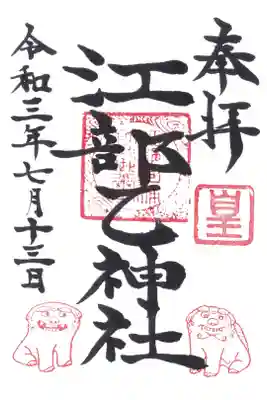 奉拝
江部乙神社
令和三年七月十三日